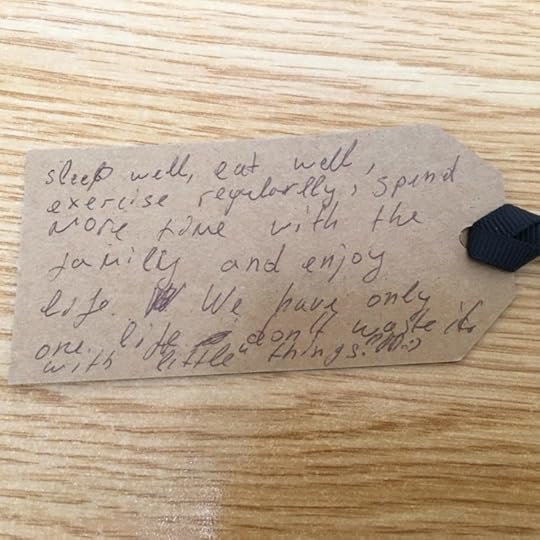 sleep well, eat well,
exercise regularlly, spend
more time with the
family and enjoy
life. We have only
one life don't waste it
with "little" things. :)